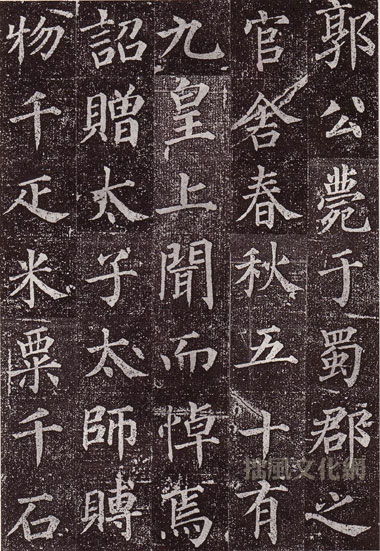 郭公薨于蜀郡之
官舍春秋五十有
九皇上聞而悼焉
詔贈太子太師賻
物千疋米粟千石
拙風文化網